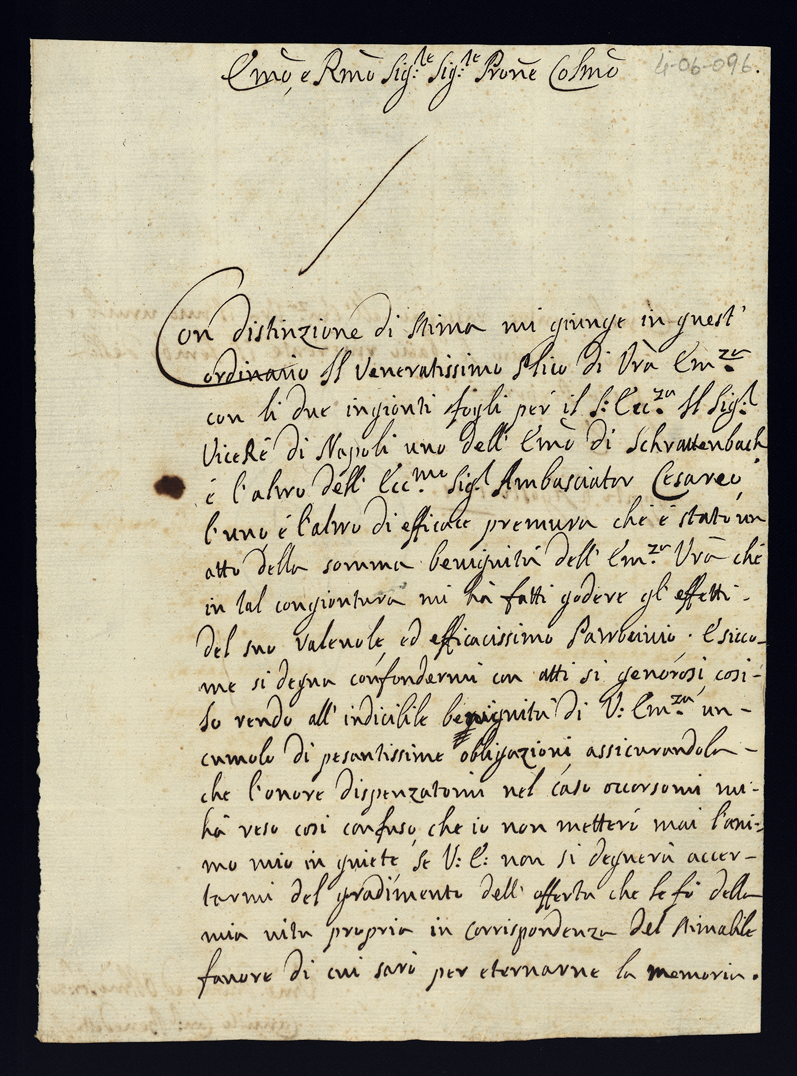 Emõ, e Rmõ Sig.re Sig.re Prone Colmõ
4-06-096.
Con distinzione di stima mi giunge in quest'
ordinario Il Veneratissimo Plico di Vrã Em.za
con li due ingionti fogli per il S: Ecc.za Il Sig.r
ViceRè di Napoli uno dell' Emõ di Schrattenbach
è l'altro dell' Ecc.mo Sig.r Ambasciator Cesareo,
l'uno è l'altro di efficace premura che è stato un
atto della somma benignità dell' Em.za Vrã che
in tal congiontura mi hà fatti godere gl' effetti -
del suo valevole, ed efficacissimo Patrocinio. E sicco-
me si degna confondermi con atti si generosi, cosi -
Io rendo all' indicibile benignità di V: Em.za un -
cumolo di pesantissime obligazioni, assicurandola -
che l'onore dispenzatomi nel caso occorsomi mi -
hà reso cosi confuso, che io non metterò mai l'ani-
mo mio in quiete, se V: E: non si degnerà accer-
tarmi del gradimento dell' offerta che le fò della
mia vita propria in corrispondenza del stimabile
favore di cui sarò per eternarne la memoria.